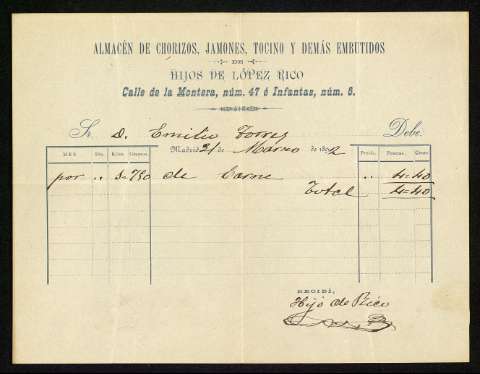 ALMACÉN DE CHORIZOS, JAMONES, TOCINO Y DEMÁS EMBUTIDOS
DE
HIJOS DE LÓPEZ RICO
Calle de la Montera, núm. 47 é Infantas, núm. 5.
Sr. D. Emilio Torres Debe
Madrid 21 de Marzo de 2
MES Día. Kilos Gramos Precio. Pesetas. Cénts
por .. 730 de Carne .. 4-40
Total 4-40
RECIBÍ,
Hijo de Rico